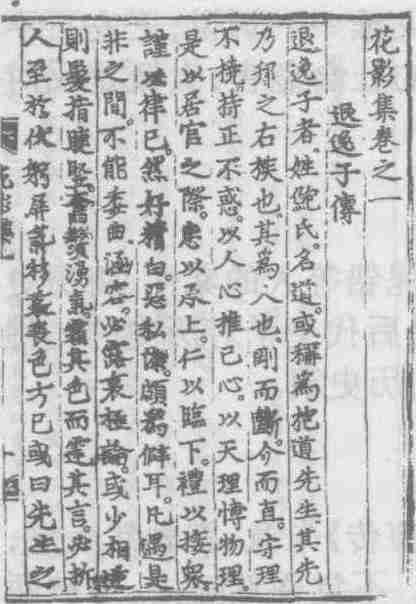 花影集卷之一
退逸子傳
退逸子者。姓鮑氏。名道。或稱為抱道先生。其先
乃鄞之右族也。其為人也。剛而斷。介而直。守理
不撓。持正不惑。以人心推己心。以天理博物理。
是以居官之際。忠以承上。仁以臨下。禮以接眾。
謹以律己。然好精白。惡私隱。頗為僻耳。凡遇是
非之間。不能委曲涵容。必露衷極論。或少相
則髮指睫竪。奮鬚湧氣。其色而其言。必折
人至於伏躬屏氣喪色方已。或曰先生之